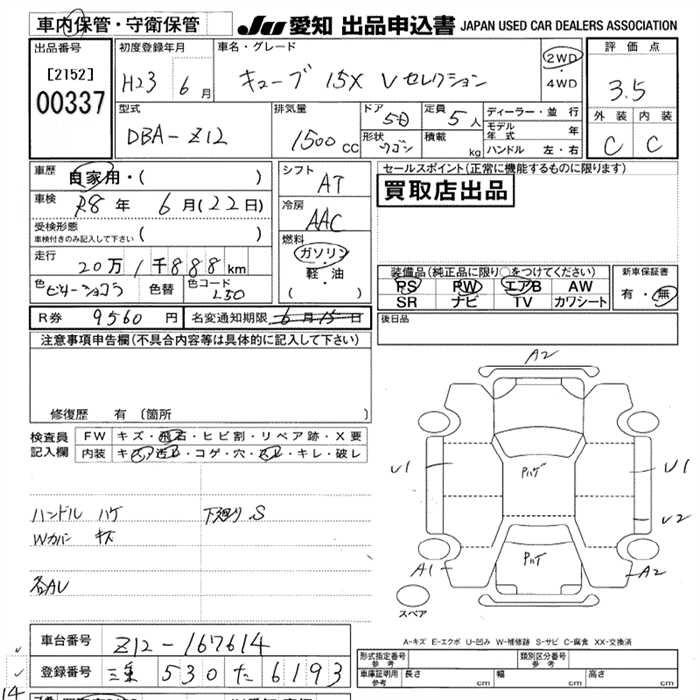 車内保管・守衛保管
JU 愛知 出品申込書 JAPAN USED CAR DEALERS ASSOCIATION
出品番号
[2152]
00337
初度登録年月
H23 6月
車名・グレード
キューブ 15X Vセレクション
2WD
・
4WD
評価点
3.5
外装 内装
C C
型式
DBA-Z12
排気量
1500cc
ドア 5D
形状 ワゴン
定員 5人
積載 kg
ディーラー・並行
モデル年式 年
ハンドル 左・右
車歴
自家用・( )
車検 R8年 6月(22日)
受検形態
車検付きのみ記入して下さい ( )
走行
20万1千888km
色 ビターショコラ 色替 色コード L50
シフト
AT
冷房
AAC
燃料
ガソリン
・
軽・油
( )
セールスポイント(正常に機能するものに限ります)
買取店出品
装備品(純正品に限り○をつけてください)
PS PW エアB AW
SR ナビ TV カワシート
新車保証書
有・無
R券 9560円 名変通知期限 6月15日
後日品
注意事項申告欄(不具合内容等は具体的に記入して下さい)
修復歴 有 〔箇所 〕
検査員記入欄
FW キズ・飛石・ヒビ割・リペア跡・X要
内装 キズ・汚レ・コゲ・穴・スレ・キレ・破レ
ハンドル ハゲ 下廻り S
Wカバー キズ
各AU
A2
U1
Pハゲ
U1
U2
Pハゲ
A1
A2
スペア
A-キズ E-エクボ U-凹み W-補修跡 S-サビ C-腐食 XX-交換済
車台番号 Z12-167614
登録番号 三重 530 た 6193
形式指定番号
参考
類別区分番号
参考
車庫証明用
参考
長さ cm 幅 cm 高さ cm
14